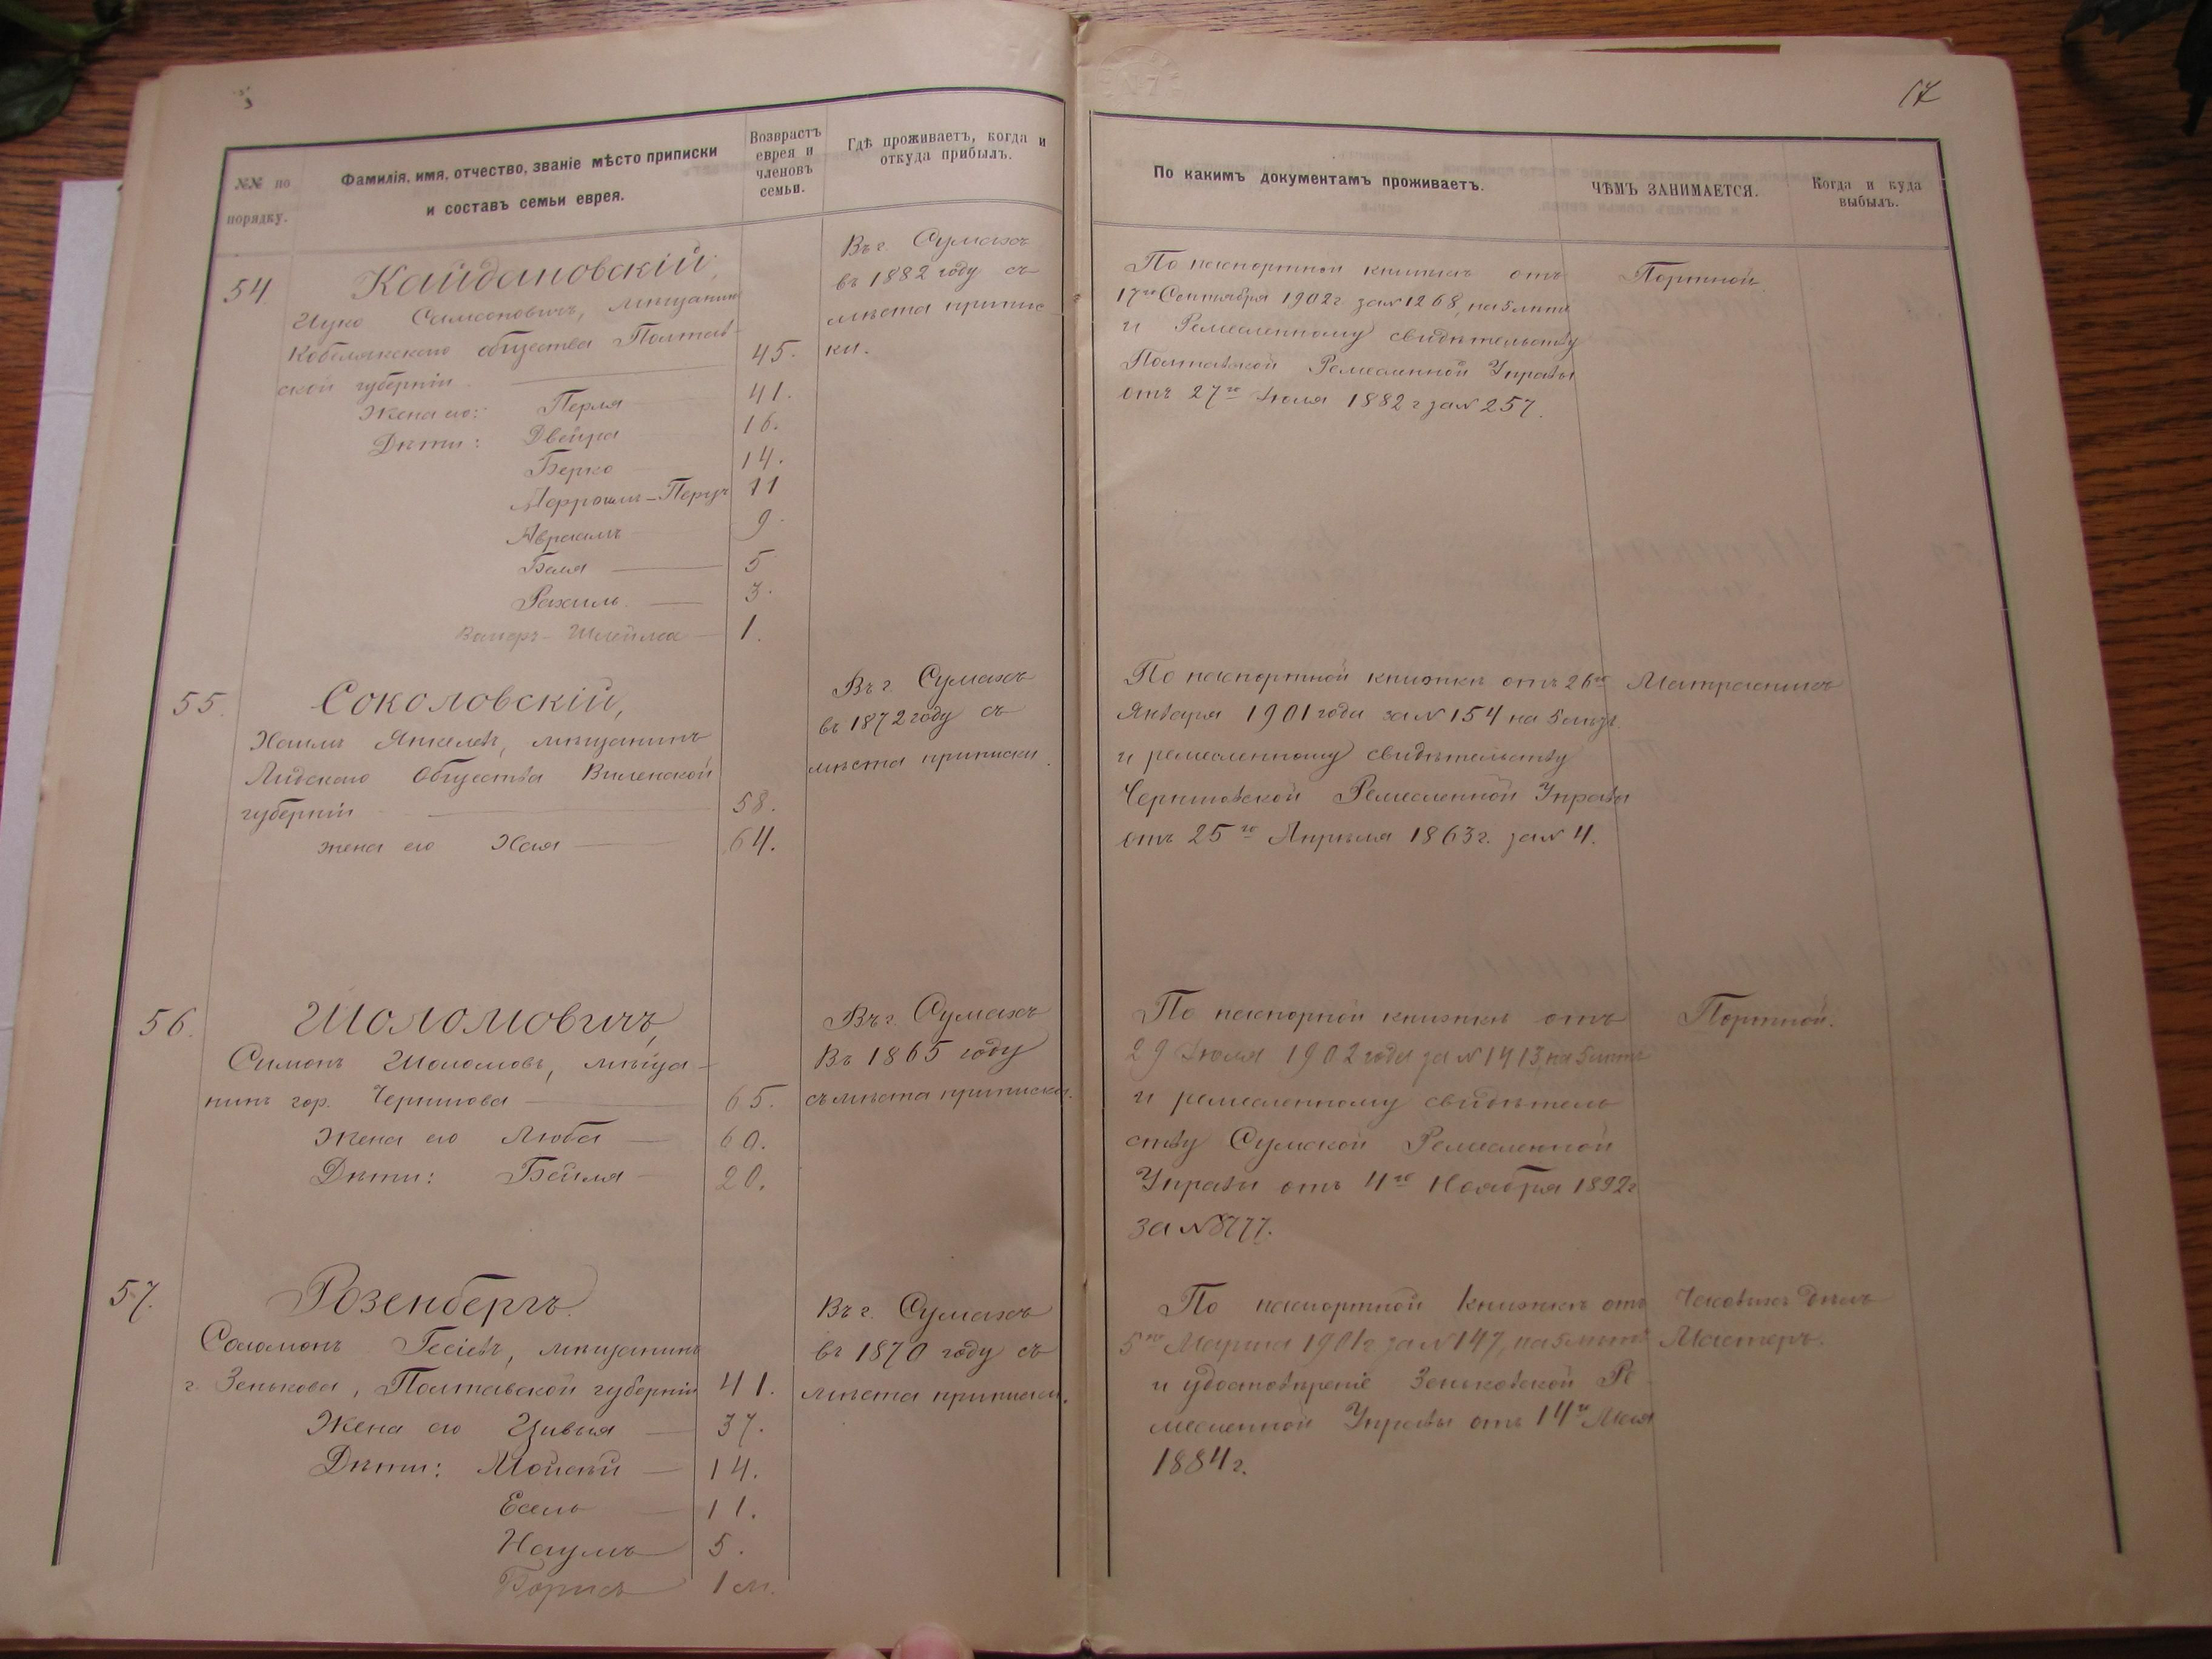 17
№№ по
порядку.
Фамилія, имя, отчество, званіе мѣсто приписки
и составъ семьи еврея.
Возврастъ
еврея и
членовъ
семьи.
Гдѣ проживаетъ, когда и
откуда прибылъ.
По какимъ документамъ проживаетъ.
ЧѢМЪ ЗАНИМАЕТСЯ.
Когда и куда
выбылъ.
54.
Кайдановскій,
Ицко Самсоновичъ, мѣщанинъ
Кобелякскаго общества Полтав-
ской губерніи 45.
Жена его: Перля 41.
Дѣти: Двейра 16.
Берко 14.
Перецъ 11
Авраамъ 9.
Беля 5
Рахиль 3.
Шлейма 1.
Въ г. Сумахъ
въ 1882 году съ
мѣста припис
ки.
По паспортной книжкѣ отъ
17го Сентября 1902 г. за № 1268, на 5 лѣтъ
и Ремесленному свидѣтельству
Полтавской Ремесленной Управы
отъ 27го Іюля 1882 г за № 257.
Портной.
55.
Соколовскій,
Хаимъ Янкелевъ, мѣщанинъ
Лидскаго Общества Виленской
губерніи 58.
жена его Хая 64.
Въ г. Сумахъ
въ 1872 году съ
мѣста приписки.
По паспортной книжкѣ отъ 26го
Января 1901 года за № 154 на 5 лѣтъ
и ремесленному свидѣтельству
Черниговской Ремесленной Управы
отъ 25го Апрѣля 1863 г. за № 4.
56.
Шоломовичъ,
Симонъ Шоломовъ, мѣща-
нинъ гор. Чернигова 65.
Жена его Люба 60.
Дѣти: Бейля 20.
Въ г. Сумахъ
Въ 1865 году
съ мѣста приписки.
По паспорной книжкѣ отъ
29 Іюля 1902 года за № 1413, на 5 лѣтъ
и ремесленному свидѣтель
ству Сумской Ремесленной
Управы отъ 4го Ноября 1892 г
за № 8777.
Портной.
57.
Розенбергъ.
Соломонъ Гесіевъ, мѣщанинъ
г. Зенькова, Полтавской губерніи 41.
Жена его Цивья 37.
Дѣти: Мойсей 14.
Есель 11.
Наумъ 5.
Борисъ 1 м.
Въ г. Сумахъ
въ 1870 году съ
мѣста приписки.
По паспортной книжкѣ отъ
5го Марта 1901 г за № 147, на 5 лѣтъ
и удостовѣреніе Зеньковской Ре
месленной Управы отъ 14го Мая
1884 г.
Часовыхъ дѣлъ
Мастеръ.